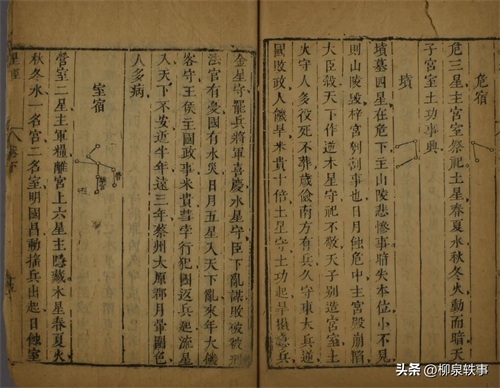 危宿
危三星主宮室祭祀土星春夏水秋冬火動而暗天
子宮室土功事典
墳
墳墓四星在危下主山陵悲慘事暗失本位小不見
則山陵梓宮剖事也日月蝕危中主宮殿崩
大臣殺天下作逆木星守祀不敬天子別造宮室土
火守人多役死不葬歲儉南方有兵久守東大兵逆
國敗政人饑旱米貴十倍土星守土功起旱意兵
金星守罷兵將軍喜慶水星守臣下亂謀敗被被刑
法官有憂國有水災日月五星入天下亂來年大饑
客守王侯主國政事米貴彗孛行犯國返兵起流星
入天下不安近半年遠三年蔡州大原郡月暈圍色
人多病
室宿
營室二星主軍糧離宮上六星主隱藏木星春夏火
秋冬水一名宮二名室明國昌動搖兵出起日蝕室
卷下
头条 @柳泉轶事